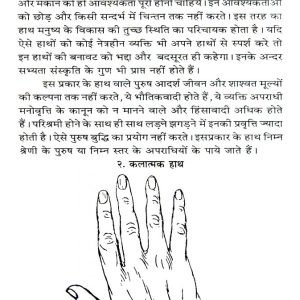 और मकान की ही आवश्यकता पूरी होनी चाहिये। इन आवश्यकताओं
को छोड़ और किसी सन्दर्भ में चिन्तन तक नहीं करते। इस तरह का
हाथ मनुष्य के विकास की तुच्छ स्थिति का परिचायक होता है। यदि
ऐसे हाथों को कोई नेत्रहीन व्यक्ति भी अपने हाथों से स्पर्श करे तो
इन हाथों की बनावट को भद्दा और बदसूरत ही कहेगा। इनके अन्दर
सभ्यता संस्कृति के गुण भी प्राप्त नहीं होते हैं।
इस प्रकार के हाथ वाले पुरुष आदर्श जीवन और शाश्वत मूल्यों
की कल्पना तक नहीं करते, ये भौतिकवादी होते हैं, ये व्यक्ति अपराधी
मनोवृत्ति के कानून को न मानने वाले और हिंसावादी अधिक होते
हैं। परिश्रमी होने के साथ ही साथ लड़ने झगड़ने में इनकी प्रवृत्ति ज्यादा
होती है। ऐसे पुरुष बुद्धि का प्रयोग नहीं करते। इसप्रकार के हाथ निम्न
श्रेणी के पुरुष या निम्न स्तर के अपराधियों के पाये जाते हैं।
२. कलात्मक हाथ